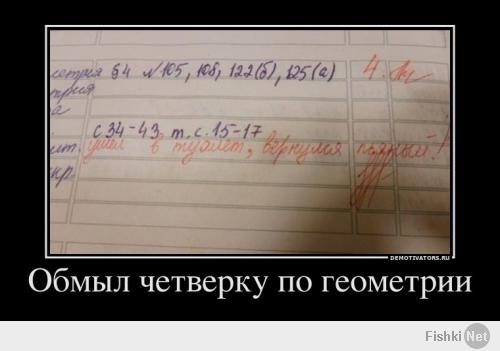 етрия §4 №105, 108, 122(б), 125(а) 4.
трия
а
с 34-43 т.с. 15-17
ит. ушел в туалет, вернулся пьяный!
кр.
DEMOTIVATORS.RU
Обмыл четверку по геометрии
Fishki Net